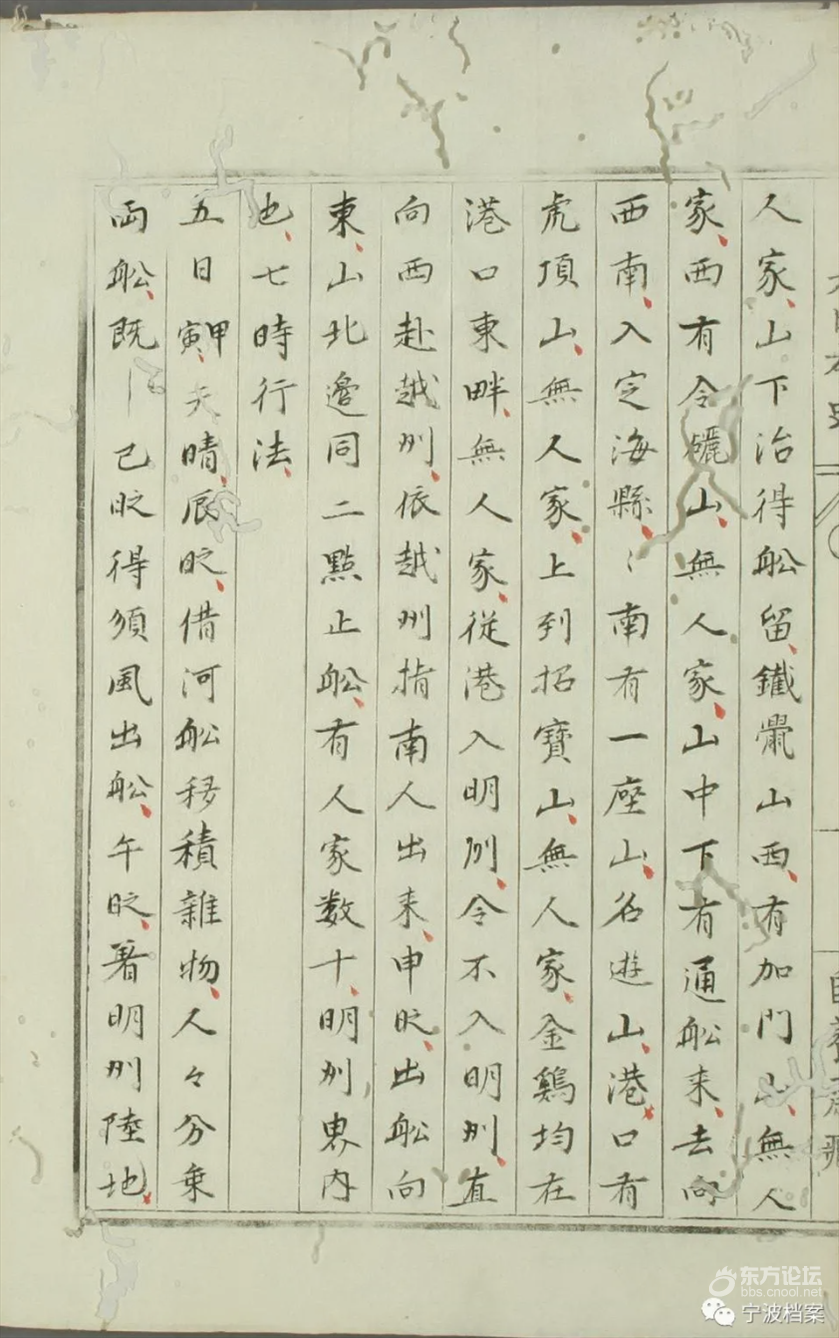 人家、山下治得舩留、鐵山西、有加門山、無人
家、西有令山、無人家、山中下有通舩来、去向
西南、入定海縣、〻南有一座山、名遊山、港口有
虎頂山、無人家、上列招寶山、無人家、金鷄均在
港口東畔、無人家、從港入明州、令不入明州、直
向西赴越州、依越州指南人出来、申旼、出舩向
東、山北邉同二點止舩、有人家数十、明州界内
也、七時行法、
五日甲寅、天晴、辰旼、借河舩移積雜物、人々分乗
両舩、既巳旼得須風出舩、午旼、著明州陸地、
东方论坛
bbs.cnool.net
宁波档案